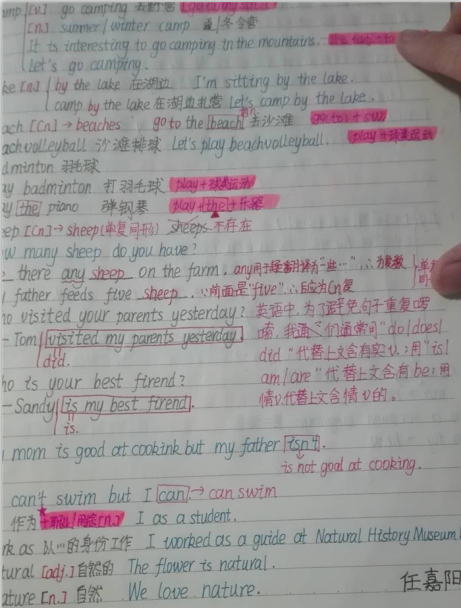 amp [v.] go camping 去野营
[n.] summer/winter camp 夏/冬令营
It is interesting to go camping in the mountains.
Let's go camping.
ke [n] by the lake 在湖边 I'm sitting by the lake.
camp by the lake 在湖边扎营 Let's camp by the lake.
ach [Cn] → beaches go to the beach 去沙滩
ach volleyball 沙滩排球 Let's play beach volleyball. play+球类运动
dminton 羽毛球
ay badminton 打羽毛球 play+球类运动
ay the piano 弹钢琴 play+the+乐器
eep [Cn] → sheep (单复同形) sheeps 不存在
ow many sheep do you have?
there any sheep on the farm. any用于疑问翻译为"一些…",∴为复数
father feeds five sheep. ∵前面是"five"∴后应为Cn复
ho visited your parents yesterday? 英语中,为了避免句子重复啰
- Tom visited my parents yesterday. 嗦,我们通常问"do/does/
did. did"代替上文含有实v.;用"is/
ho is your best firend? am/are"代替上文含有be;用
- Sandy is my best firend. 情v.代替上文含情v的。
is.
mom is good at cookink but my father isn't.
is not goal at cooking.
can't swim but I can → can swim
作为+职业/ [n.] I as a student.
rk as 以…的身份工作 I worked as a guide at Natural History Museum
tural [adj.] 自然的 The flower is natural.
ature [n.] 自然 We love nature.
任嘉阳